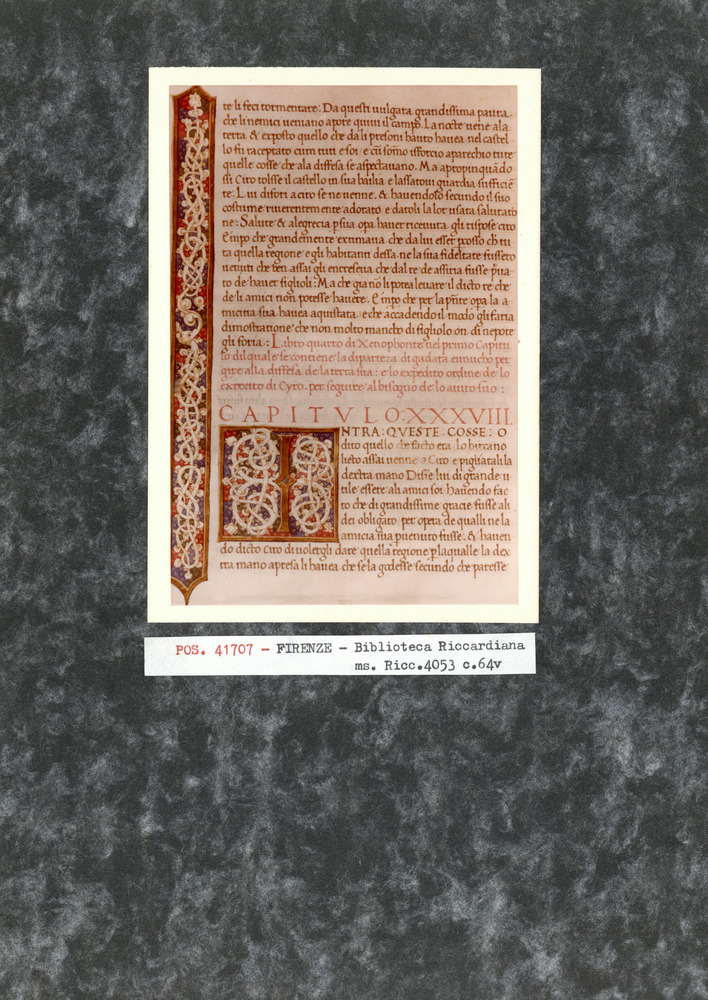 te li feci tormentare: Da questi uulgata grandissima paura
che li nemici ueniano apore quiui il campo. La nocte uene ala
terra & exposto quello che da li presoni hauto hauea nel castel
lo fu raceptato cum tuti e soi e cū sōmo isforcio aparechio tute
quelle cosse che ala diffesa se aspectauano. Ma apropinquādo
ssi Ciro tolsse il castello in sua bailia e lassatoui guardia sufficiē
te. Lui difori a ciro se ne uenne. & hauendolo secundo il suo
costume riuerentemente adorato e datoli la lor usata salutatio
ne: Salute & alegrecia p sua opa hauer riceuuta gli rispose ciro
E inpo che grandemente extimaua che da lui esser posso ch tu
ta quella regione e gli habitanti dessa ne la sua fidelitate fussero
uenuti che ben assai gli encresceua che dal re de assiria fusse p̄ua
to de hauer figlioli: Ma che gia nō li potea leuare il dicto re che
de li amici non potesse hauere. E inpo che per la p̄nte opa la a
micitia sua hauea aquistata. e che accadendo il modo gli faria
dimostratione che non molto mancho di figliolo on. di nepote
gli foria: Libro quarto di Xenophonte nel primo Capitu
lo dil quale se contiene la dipartera di gadata eunucho per
gire alla diffesa de la terra sua: e lo expedito ordine de lo
exercito di Cyro. per seguire al bisogno de lo aiuto suo:
CAPITVLO:XXXVIII.
NTRA: QVESTE. COSSE: O
dito quello che facto era. Lo hircano
lieto assai uenne a Ciro e pigliatali la
dextra mano Disse lui di grande u
tile essere ali amici soi hauendo fac
to che di grandissime gracie fusse ali
dei obligato per opera de qualli ne la
amicia sua puenuto fusse. & hauen
do dicto Ciro di uolergli dare quella regione p laqualle la dex
tra mano apresa li hauea che se la godesse secundo che paresse
POS. 41707 - FIRENZE - Biblioteca Riccardiana
ms. Ricc.4053 c.64v